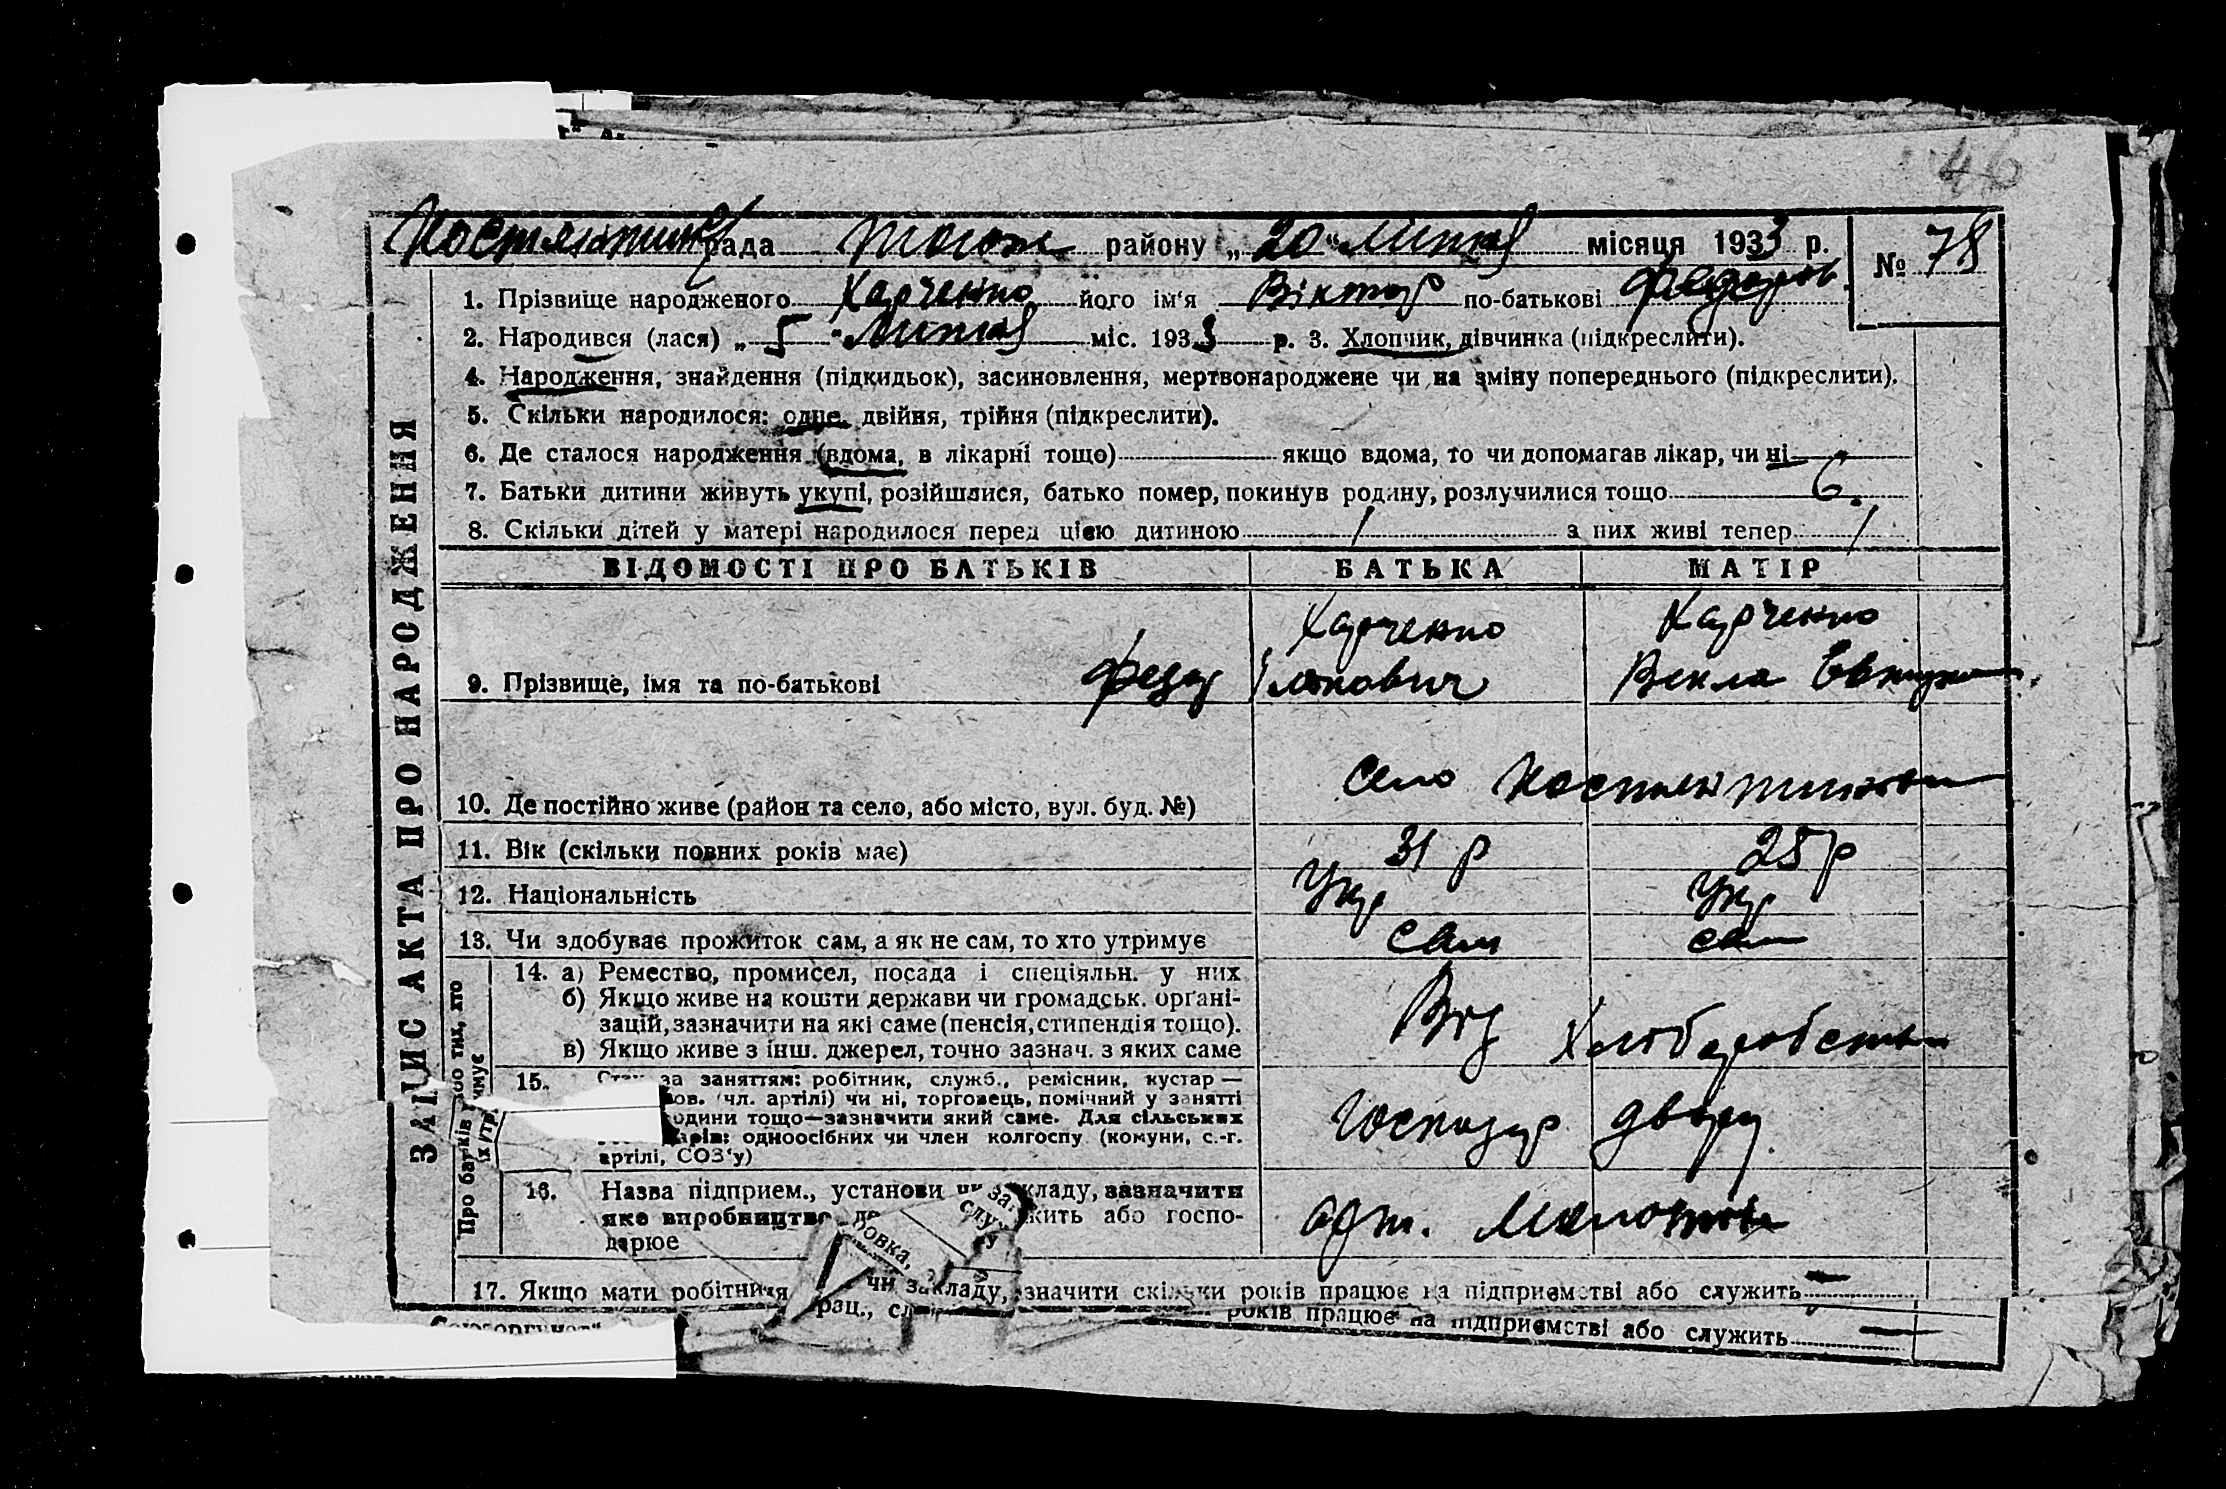 46
рада району „ 20 “ Липня місяця 1933 р. № 78
ЗАПИС АКТА ПРО НАРОДЖЕННЯ
1. Прізвище народженого Харченко його ім'я Віктор по-батькові Федоров.
2. Народився (лася) „ 5 “ Липня міс. 1933 р. 3. Хлопчик, дівчинка (підкреслити).
4. Народження, знайдення (підкидьок), засиновлення, мертвонароджене чи на зміну попереднього (підкреслити).
5. Скільки народилося: одне, двійня, трійня (підкреслити).
6. Де сталося народження (вдома, в лікарні тощо) якщо вдома, то чи допомагав лікар, чи ні
7. Батьки дитини живуть укупі, розійшлися, батько помер, покинув родину, розлучилися тощо 6.
8. Скільки дітей у матері народилося перед цією дитиною 1 з них живі тепер 1
ВІДОМОСТІ ПРО БАТЬКІВ БАТЬКА МАТІР
Харченко Харченко
9. Прізвище, імя та по-батькові Федор Векла
село
10. Де постійно живе (район та село, або місто, вул. буд. №)
11. Вік (скільки повних років має) 31 р 25 р
12. Національність Укр Укр
13. Чи здобуває прожиток сам, а як не сам, то хто утримує сам сам
Про батьків або тих, хто
їх утримує
14. а) Ремество, промисел, посада і спеціяльн. у них
б) Якщо живе на кошти держави чи громадськ. органі-
зацій, зазначити на які саме (пенсія, стипендія тощо).
в) Якщо живе з інш. джерел, точно зазнач. з яких саме
15. Стан за заняттям: робітник, служб., ремісник, кустар —
ов. (чл. артілі) чи ні, торговець, помічний у занятті
одини тощо—зазначити який саме. Для сільських
арів: одноосібних чи член колгоспу (комуни, с.-г.
артілі, СОЗ'у)
Господар двору
16. Назва підприєм., установи чи закладу, зазначити
яке виробництво жить або госпо-
дарює
арт.
за
слу
ловка,
чи закладу,
рац., сл
17. Якщо мати робітниця значити скільки років працює на підприємстві або служить —
років працює на підприємстві або служить —